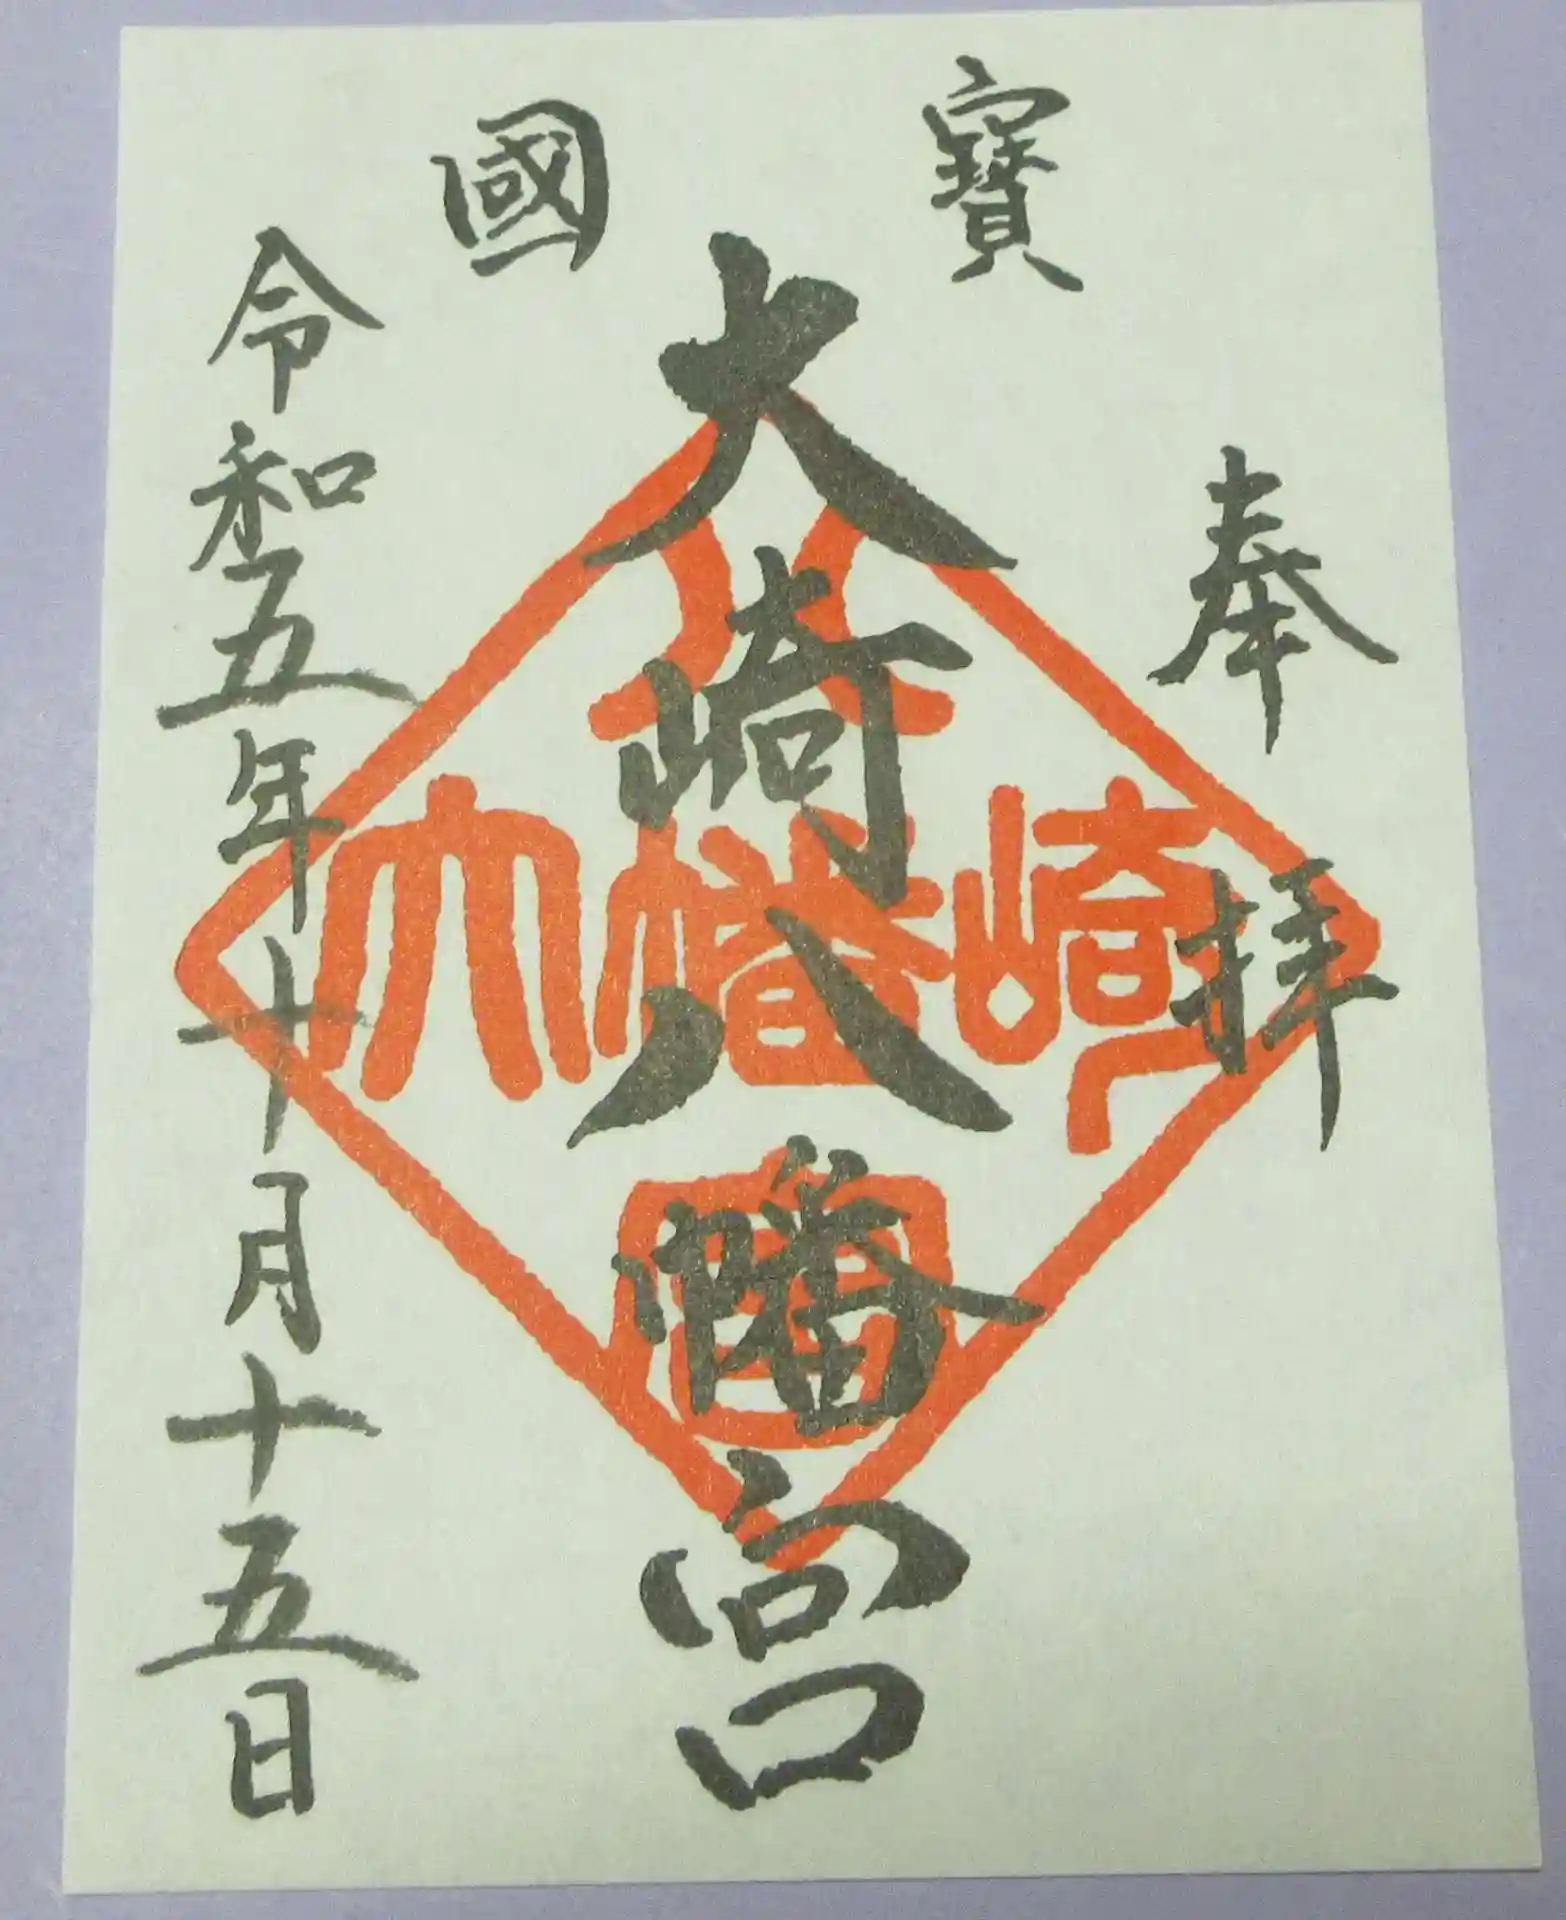 奉拝
國寶
大崎八幡宮
令和五年十月十五日
八
大幡崎
宮